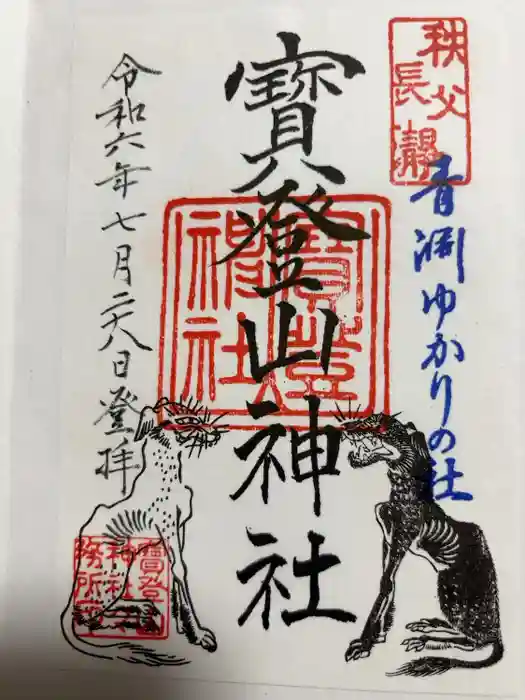 秩父
長瀞
青淵ゆかりの社
寶登山神社
寶登山
神社
令和六年七月二十八日登拝
寶登山
神社社
務所印